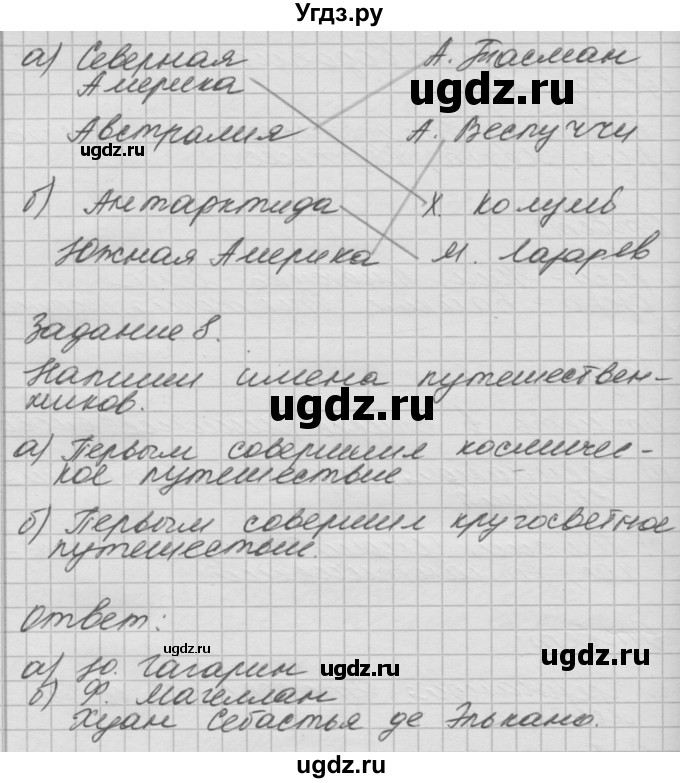 Угдз.ру
а) Северная А. Тасман
Америка
ugdz.ru
Австралия А. Веспуччи
ugdz.ru
б) Антарктида Х. Колумб
Южная Америка М. Лазарев
Задание 8.
Напиши имена путешествен-
ников.
ugdz.ru
а) Первым совершил космичес-
кое путешествие
б) Первым совершил кругосветное
путешествие.
ugdz.ru
Ответ:
ugdz.ru
а) Ю. Гагарин
ugdz.ru ugdz.ru
б) Ф. Магеллан
Хуан Себастья де Элькано.
ugdz.ru